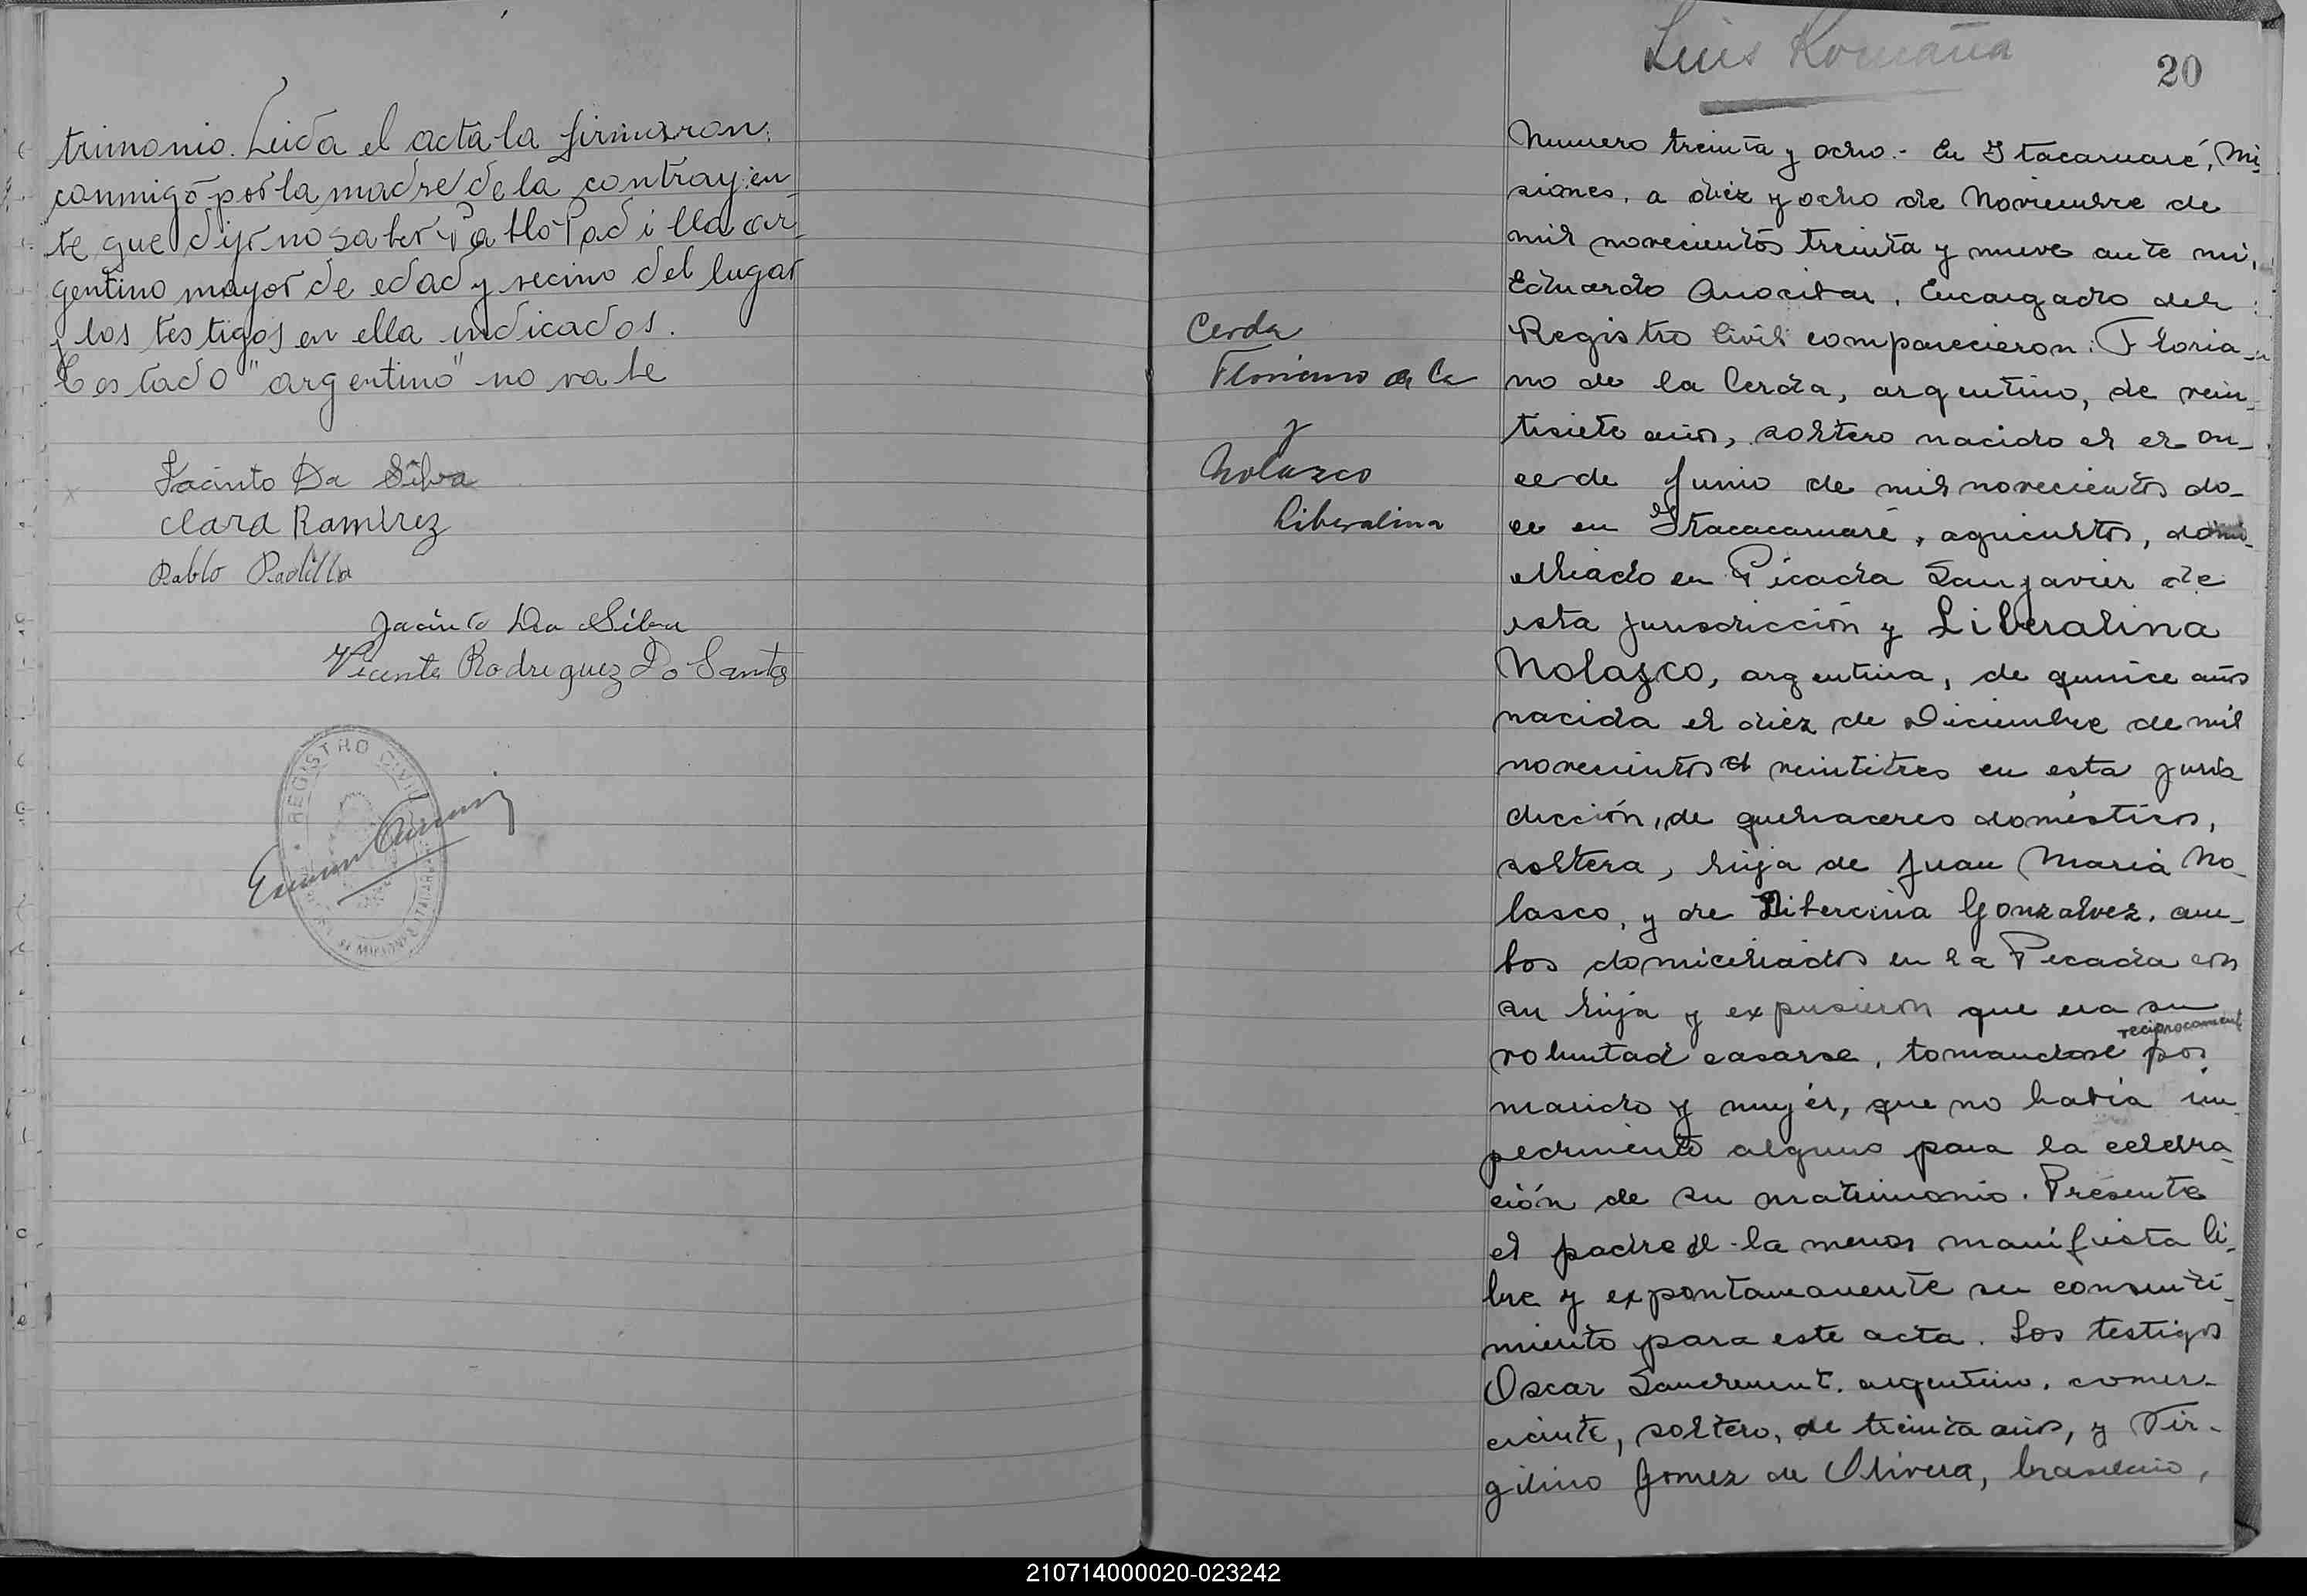 trimonio. Leida el acta la firmaron
conmigo por la madre de la contrayen-
te que dijo no saber Pablo Padilla ar-
gentino mayor de edad y vecino del lugar
y los testigos en ella indicados.
Testado "argentino" no vale
Jacinto Da Silva
Clara Ramirez
Pablo Padilla
Jacinto Da Silva
Vicente Rodriguez Do Santos
REGISTRO CIVIL
MISIONES
Luis Romaña
20
Cerda
Floriano de la
y
Nolazco
Liberalina
Numero treinta y ocho.- En Itacaruaré, Mi-
siones, a diez y ocho de Noviembre de
mil novecientos treinta y nueve ante mi,
Eduardo Encargado del
Registro Civil comparecieron: Floria-
no de la Cerda, argentino, de vein-
tisiete años, soltero nacido el el on-
ce de Junio de mil novecientos do-
ce en Itacacaruaré, agricultor, domi-
ciliado en Picada San Javier de
esta jurisdricción y Liberalina
Nolazco, argentina, de quince años
nacida el diez de Diciembre de mil
novecientos veintitres en esta juris
dicción, de quehaceres domésticos,
soltera, hija de Juan Maria No-
lasco, y de Gonzalvez, am-
bos domiciliados en la Picada con
su hija y expusieron que era su
reciprocament
voluntad casarse, tomandose por
marido y mujér, que no había im-
pedimento alguno para la celebra-
ción de su matrimonio. Presente
el padre de la menor manifiesta li-
bre y expontaneamente su consenti-
miento para este acta. Los testigos
Oscar argentino, comer-
ciante, soltero, de treinta años, y Vir-
gilino Gomez de Olivera, brasileño,
210714000020-023242